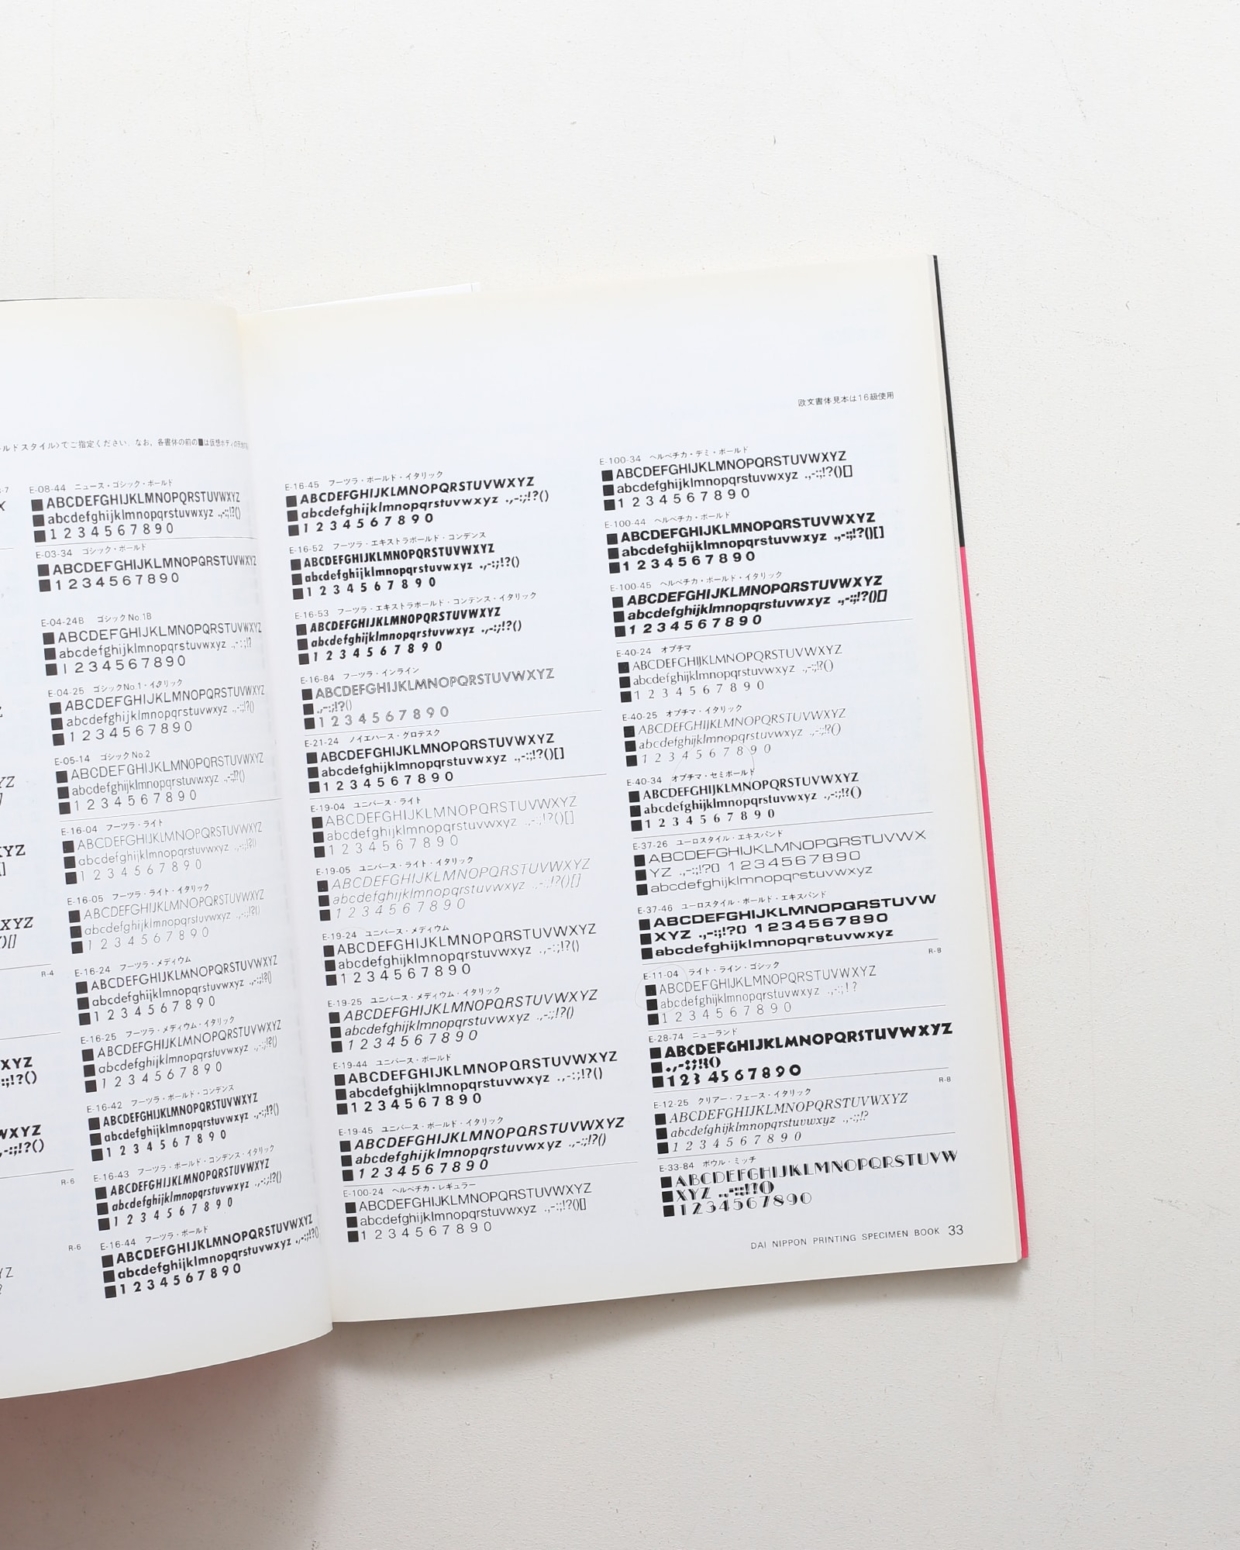 ルドスタイル〉でご指定ください。なお、各書体の前の■は仮想ボディ
E-08-44 ニュース・ゴシック・ボールド
ABCDEFGHIJKLMNOPQRSTUVWXYZ
abcdefghijklmnopqrstuvwxyz .,-:;!?()
1234567890
E-03-34 ゴシック・ボールド
ABCDEFGHIJKLMNOPQRSTUVWXYZ
1234567890
E-04-24B ゴシックNo.1B
ABCDEFGHIJKLMNOPQRSTUVWXYZ
abcdefghijklmnopqrstuvwxyz .,-:;!?
1234567890
E-04-25 ゴシックNo.1・イタリック
ABCDEFGHIJKLMNOPQRSTUVWXYZ
abcdefghijklmnopqrstuvwxyz .,-:;!?()
1234567890
E-05-14 ゴシックNo.2
ABCDEFGHIJKLMNOPQRSTUVWXYZ
abcdefghijklmnopqrstuvwxyz .,-:;!?()
1234567890
E-16-04 フーツラ・ライト
ABCDEFGHIJKLMNOPQRSTUVWXYZ
abcdefghijklmnopqrstuvwxyz .,-:;!?()
1234567890
E-16-05 フーツラ・ライト・イタリック
ABCDEFGHIJKLMNOPQRSTUVWXYZ
abcdefghijklmnopqrstuvwxyz .,-:;!?()
1234567890
R-4
E-16-24 フーツラ・メディウム
ABCDEFGHIJKLMNOPQRSTUVWXYZ
abcdefghijklmnopqrstuvwxyz .,-:;!?()
1234567890
E-16-25 フーツラ・メディウム・イタリック
ABCDEFGHIJKLMNOPQRSTUVWXYZ
abcdefghijklmnopqrstuvwxyz .,-:;!?()
1234567890
E-16-42 フーツラ・ボールド・コンデンス
ABCDEFGHIJKLMNOPQRSTUVWXYZ
abcdefghijklmnopqrstuvwxyz .,-:;!?()
1234567890
R-6
E-16-43 フーツラ・ボールド・コンデンス・イタリック
ABCDEFGHIJKLMNOPQRSTUVWXYZ
abcdefghijklmnopqrstuvwxyz .,-:;!?()
1234567890
R-6
E-16-44 フーツラ・ボールド
ABCDEFGHIJKLMNOPQRSTUVWXYZ
abcdefghijklmnopqrstuvwxyz .,-:;!?()
1234567890
欧文書体見本は16級使用
E-16-45 フーツラ・ボールド・イタリック
ABCDEFGHIJKLMNOPQRSTUVWXYZ
abcdefghijklmnopqrstuvwxyz .,-:;!?()
1234567890
E-16-52 フーツラ・エキストラボールド・コンデンス
ABCDEFGHIJKLMNOPQRSTUVWXYZ
abcdefghijklmnopqrstuvwxyz .,-:;!?()
1234567890
E-16-53 フーツラ・エキストラボールド・コンデンス・イタリック
ABCDEFGHIJKLMNOPQRSTUVWXYZ
abcdefghijklmnopqrstuvwxyz .,-:;!?()
1234567890
E-16-84 フーツラ・インライン
ABCDEFGHIJKLMNOPQRSTUVWXYZ
.,-:;!?()
1234567890
E-21-24 ノイエハース・グロテスク
ABCDEFGHIJKLMNOPQRSTUVWXYZ
abcdefghijklmnopqrstuvwxyz .,-:;!?()[]
1234567890
E-19-04 ユニバース・ライト
ABCDEFGHIJKLMNOPQRSTUVWXYZ
abcdefghijklmnopqrstuvwxyz .,-:;!?()[]
1234567890
E-19-05 ユニバース・ライト・イタリック
ABCDEFGHIJKLMNOPQRSTUVWXYZ
abcdefghijklmnopqrstuvwxyz .,-:;!?()[]
1234567890
E-19-24 ユニバース・メディウム
ABCDEFGHIJKLMNOPQRSTUVWXYZ
abcdefghijklmnopqrstuvwxyz .,-:;!?()
1234567890
E-19-25 ユニバース・メディウム・イタリック
ABCDEFGHIJKLMNOPQRSTUVWXYZ
abcdefghijklmnopqrstuvwxyz .,-:;!?()
1234567890
E-19-44 ユニバース・ボールド
ABCDEFGHIJKLMNOPQRSTUVWXYZ
abcdefghijklmnopqrstuvwxyz .,-:;!?()
1234567890
E-19-45 ユニバース・ボールド・イタリック
ABCDEFGHIJKLMNOPQRSTUVWXYZ
abcdefghijklmnopqrstuvwxyz .,-:;!?()
1234567890
E-100-24 ヘルベチカ・レギュラー
ABCDEFGHIJKLMNOPQRSTUVWXYZ
abcdefghijklmnopqrstuvwxyz .,-:;!?()[]
1234567890
E-100-34 ヘルベチカ・デミ・ボールド
ABCDEFGHIJKLMNOPQRSTUVWXYZ
abcdefghijklmnopqrstuvwxyz .,-:;!?()[]
1234567890
E-100-44 ヘルベチカ・ボールド
ABCDEFGHIJKLMNOPQRSTUVWXYZ
abcdefghijklmnopqrstuvwxyz .,-:;!?()[]
1234567890
E-100-45 ヘルベチカ・ボールド・イタリック
ABCDEFGHIJKLMNOPQRSTUVWXYZ
abcdefghijklmnopqrstuvwxyz .,-:;!?()[]
1234567890
E-40-24 オプチマ
ABCDEFGHIJKLMNOPQRSTUVWXYZ
abcdefghijklmnopqrstuvwxyz .,-:;!?()
1234567890
E-40-25 オプチマ・イタリック
ABCDEFGHIJKLMNOPQRSTUVWXYZ
abcdefghijklmnopqrstuvwxyz .,-:;!?()
1234567890
E-40-34 オプチマ・セミボールド
ABCDEFGHIJKLMNOPQRSTUVWXYZ
abcdefghijklmnopqrstuvwxyz .,-:;!?()
1234567890
E-37-26 ユーロスタイル・エキスパンド
ABCDEFGHIJKLMNOPQRSTUVWX
YZ .,-:;!?() 1234567890
abcdefghijklmnopqrstuvwxyz
E-37-46 ユーロスタイル・ボールド・エキスパンド
ABCDEFGHIJKLMNOPQRSTUVW
XYZ .,-:;!?() 1234567890
abcdefghijklmnopqrstuvwxyz
R-8
E-11-04 ライト・ライン・ゴシック
ABCDEFGHIJKLMNOPQRSTUVWXYZ
abcdefghijklmnopqrstuvwxyz .,-:;!?
1234567890
E-28-74 ニューランド
ABCDEFGHIJKLMNOPQRSTUVWXYZ
.,-:;!?()
1234567890
R-8
E-12-25 クリアー・フェース・イタリック
ABCDEFGHIJKLMNOPQRSTUVWXYZ
abcdefghijklmnopqrstuvwxyz .,-:;!?
1234567890
E-33-84 ボウル・ミッチ
ABCDEFGHIJKLMNOPQRSTUVW
XYZ .,-:;!?()
1234567890
DAI NIPPON PRINTING SPECIMEN BOOK 33